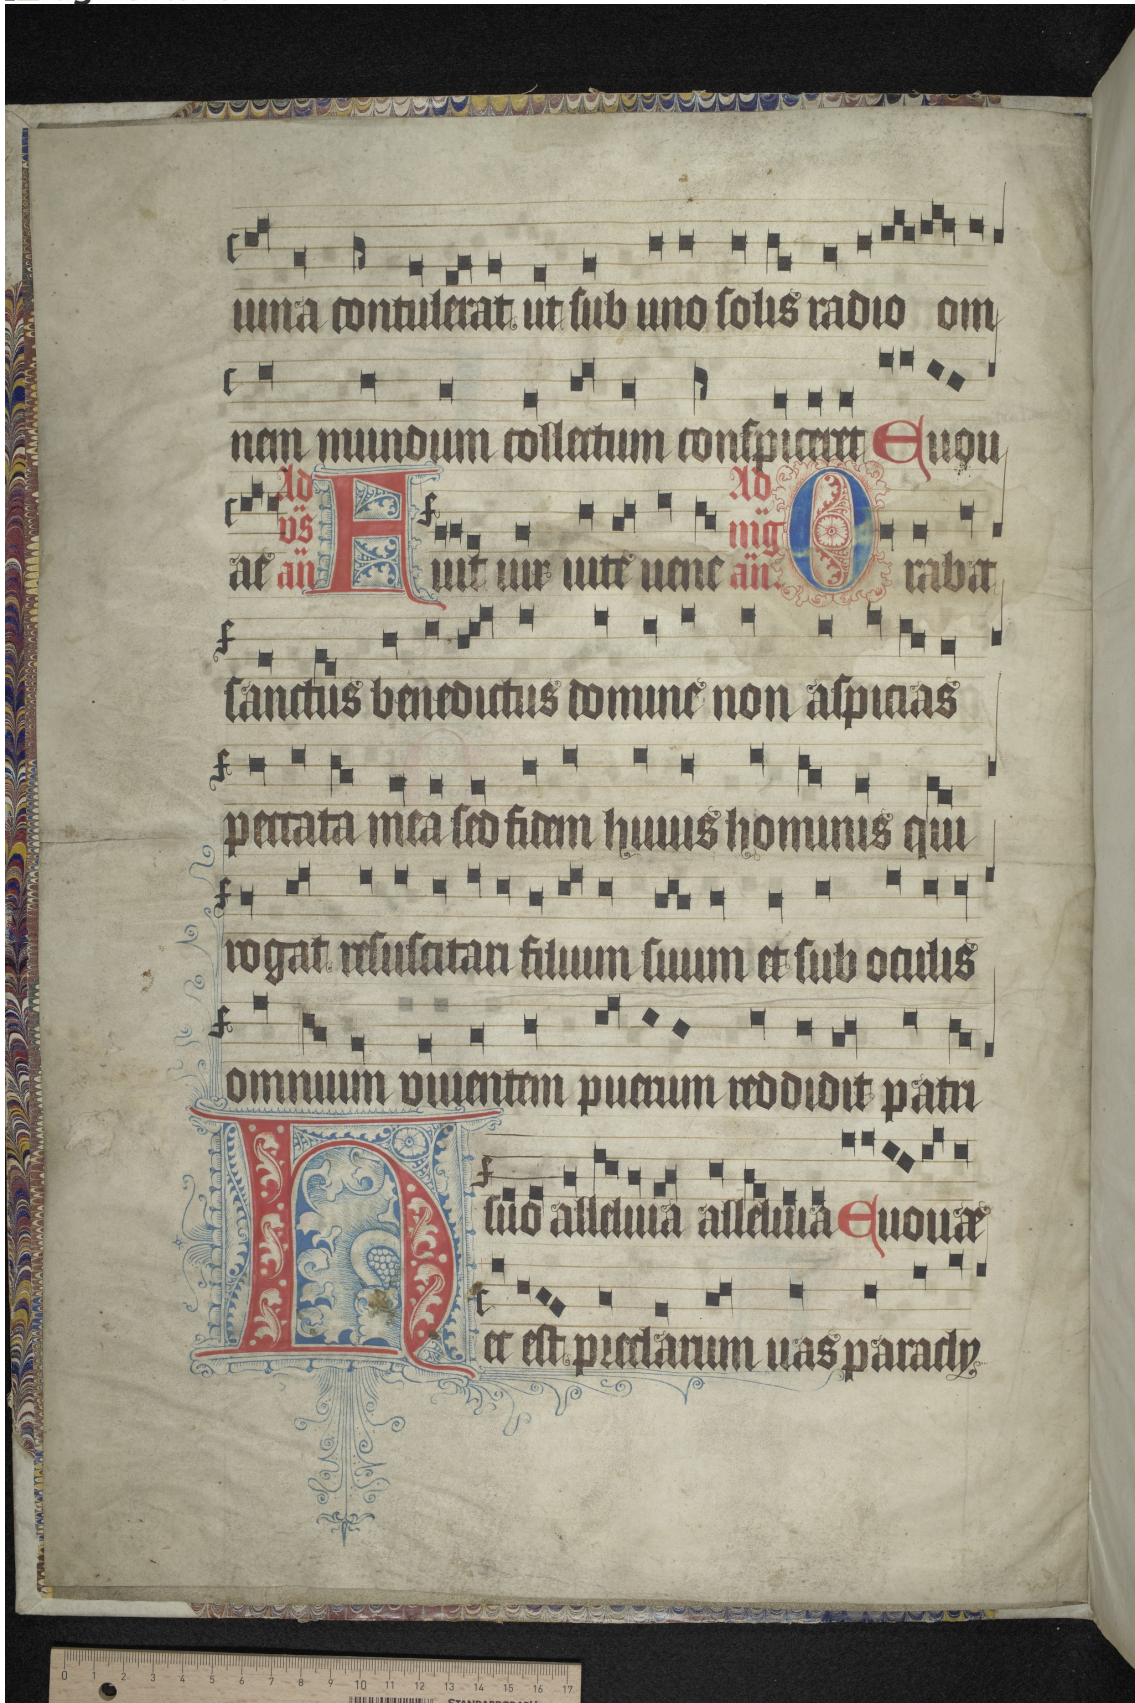 uina contulerat ut sub uno solis radio om
nem mundum collectum conspiceret Euou
ae Ad vs̃ añ Fuit uir uite uene Ad mg̃ añ. Orabat
sanctus benedictus domine non aspicias
peccata mea sed fidem huius hominis qui
rogat resuscitari filium suum et sub oculis
omnium viuentem puerum reddidit patri
suo alleluia alleluia Euouae
Hec est preclarum uas parady
0 1 2 3 4 5 6 7 8 9 10 11 12 13 14 15 16 17